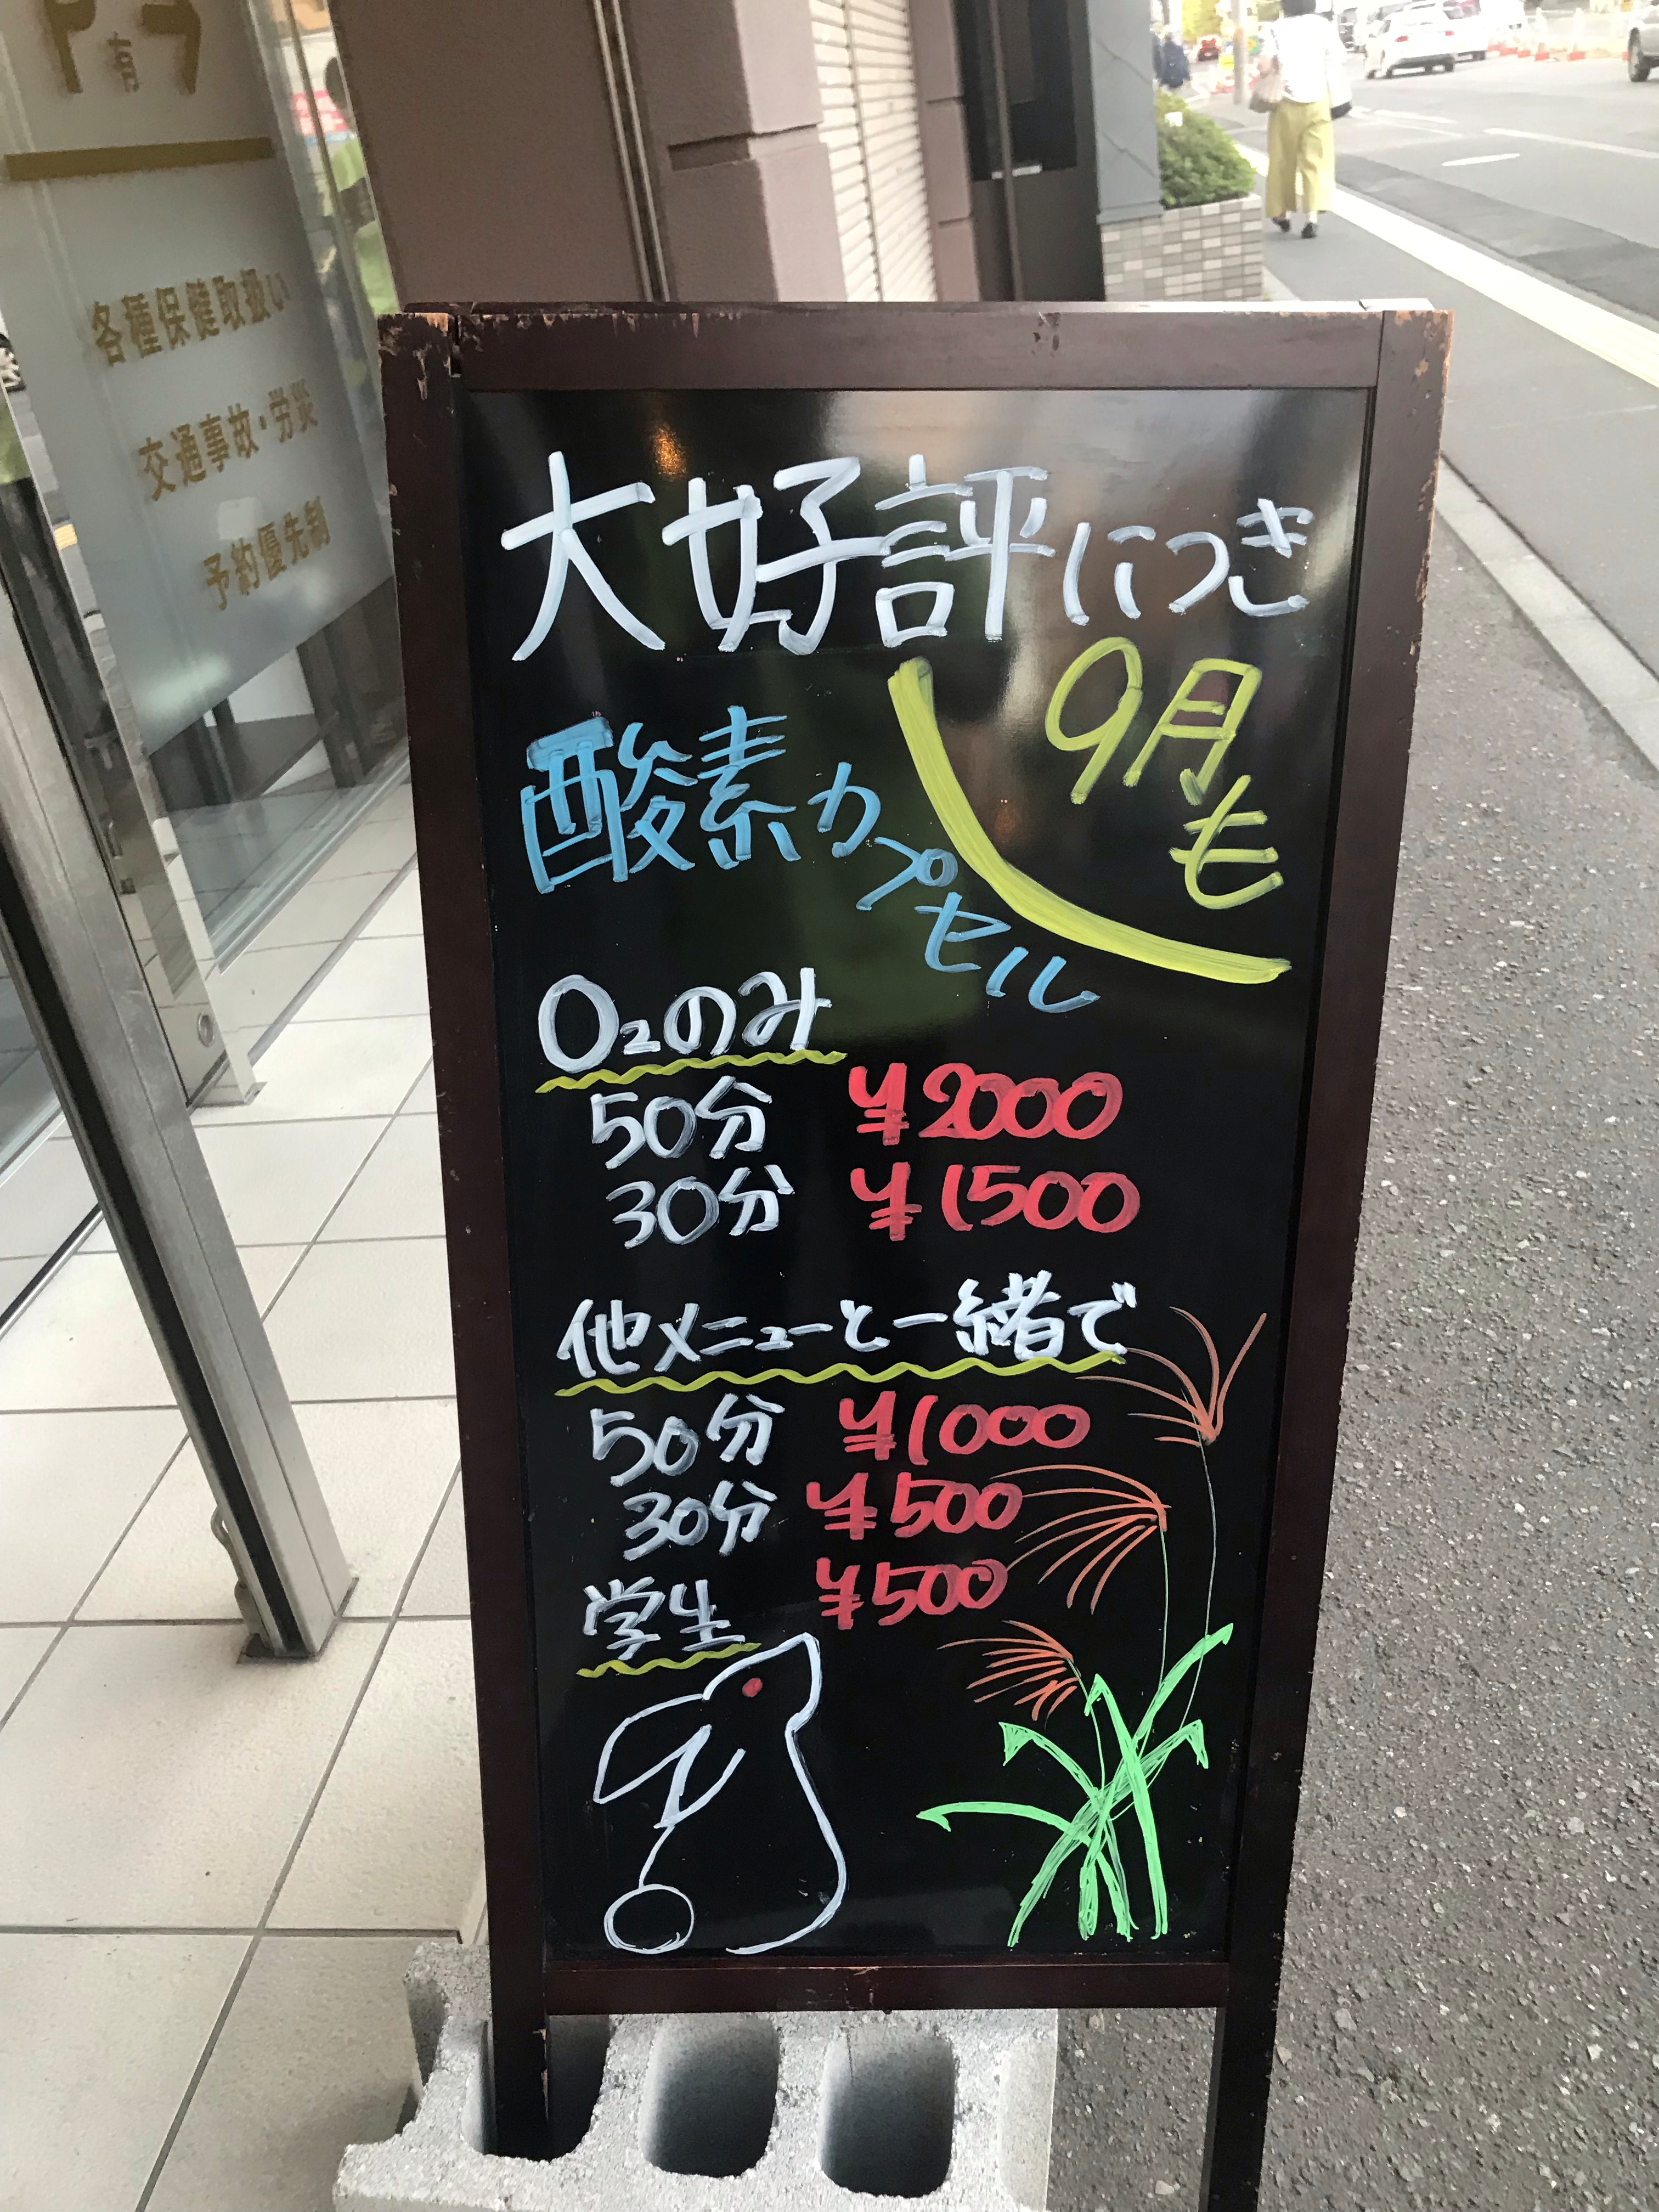 有
各種保健取扱い
交通事故・労災
予約優先制
大好評につき
9月も
酸素カプセル
O₂のみ
50分 ¥2000
30分 ¥1500
他メニューと一緒で
50分 ¥1000
30分 ¥500
学生 ¥500